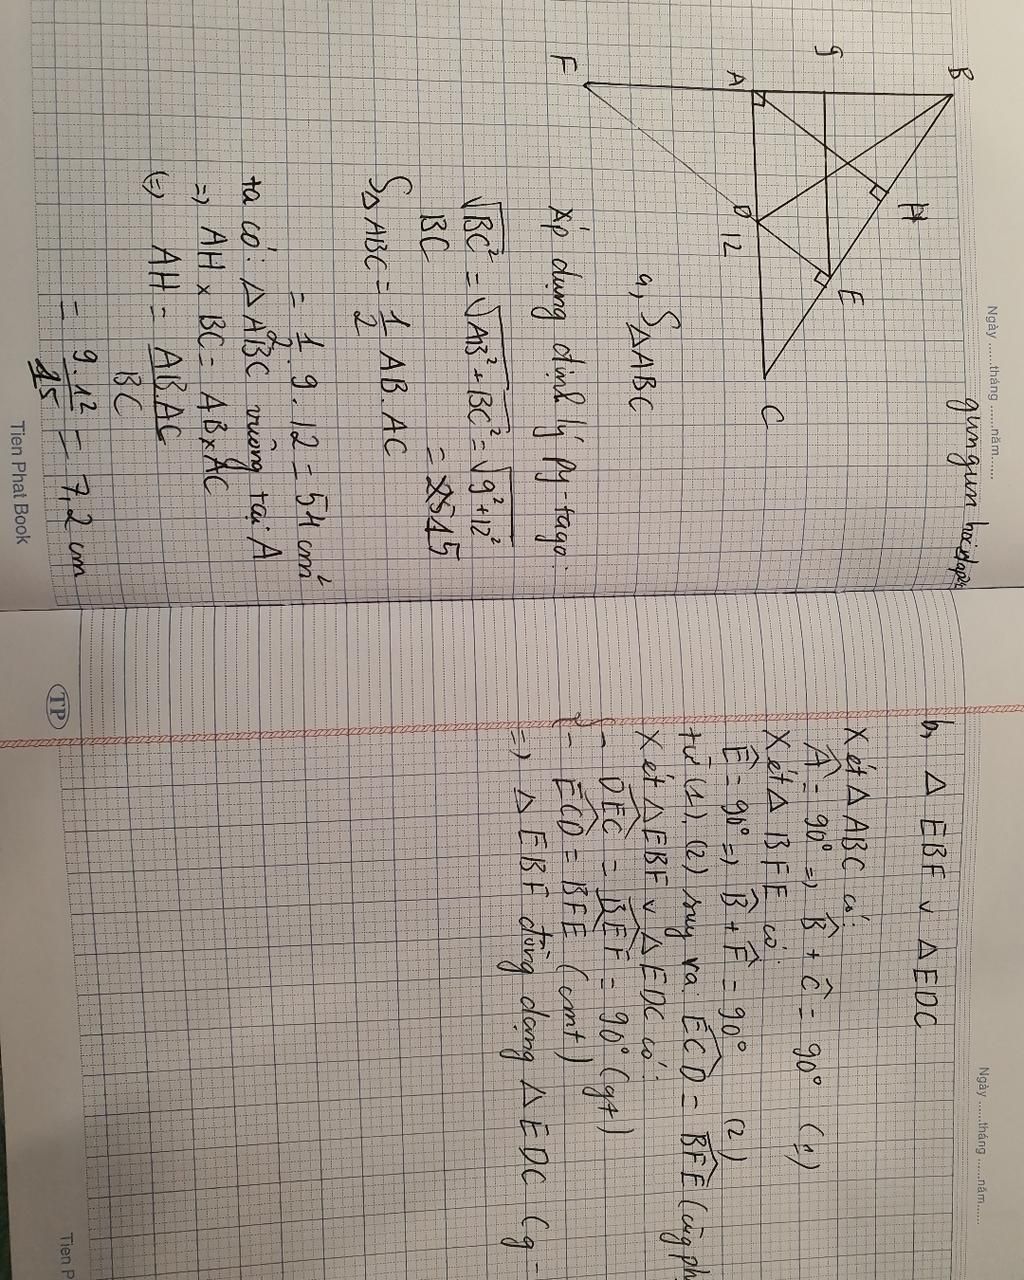 Ngày ......tháng ......năm......
gungun hoidap
B
9
A
F
H
D
12
E
C
a, S△ABC
Áp dụng định lý py-tago:
√BC² = √AB² + BC² = √9² + 12²
BC = 15
S△ABC = 1/2 AB. AC
= 1/2 . 9 . 12 = 54 cm²
ta có: △ABC vuông tại A
=> AH x BC = AB x AC
(=) AH = AB.AC/BC
= 9.12/15 = 7,2 cm
Tien Phat Book
Ngày ......tháng ......năm......
b, △ EBF ∨ △ EDC
Xét △ ABC có:
Â = 90° => B̂ + Ĉ = 90° (1)
Xét △ BFE có:
Ê = 90° => B̂ + F̂ = 90° (2)
từ (1), (2) suy ra: ECD = BFE (cùng ph
Xét △ EBF ∨ △ EDC có:
- DEC = BEF = 90° (gt)
- ECD = BFE (cmt)
=> △ EBF đồng dạng △ EDC (g -
TP
Tien P